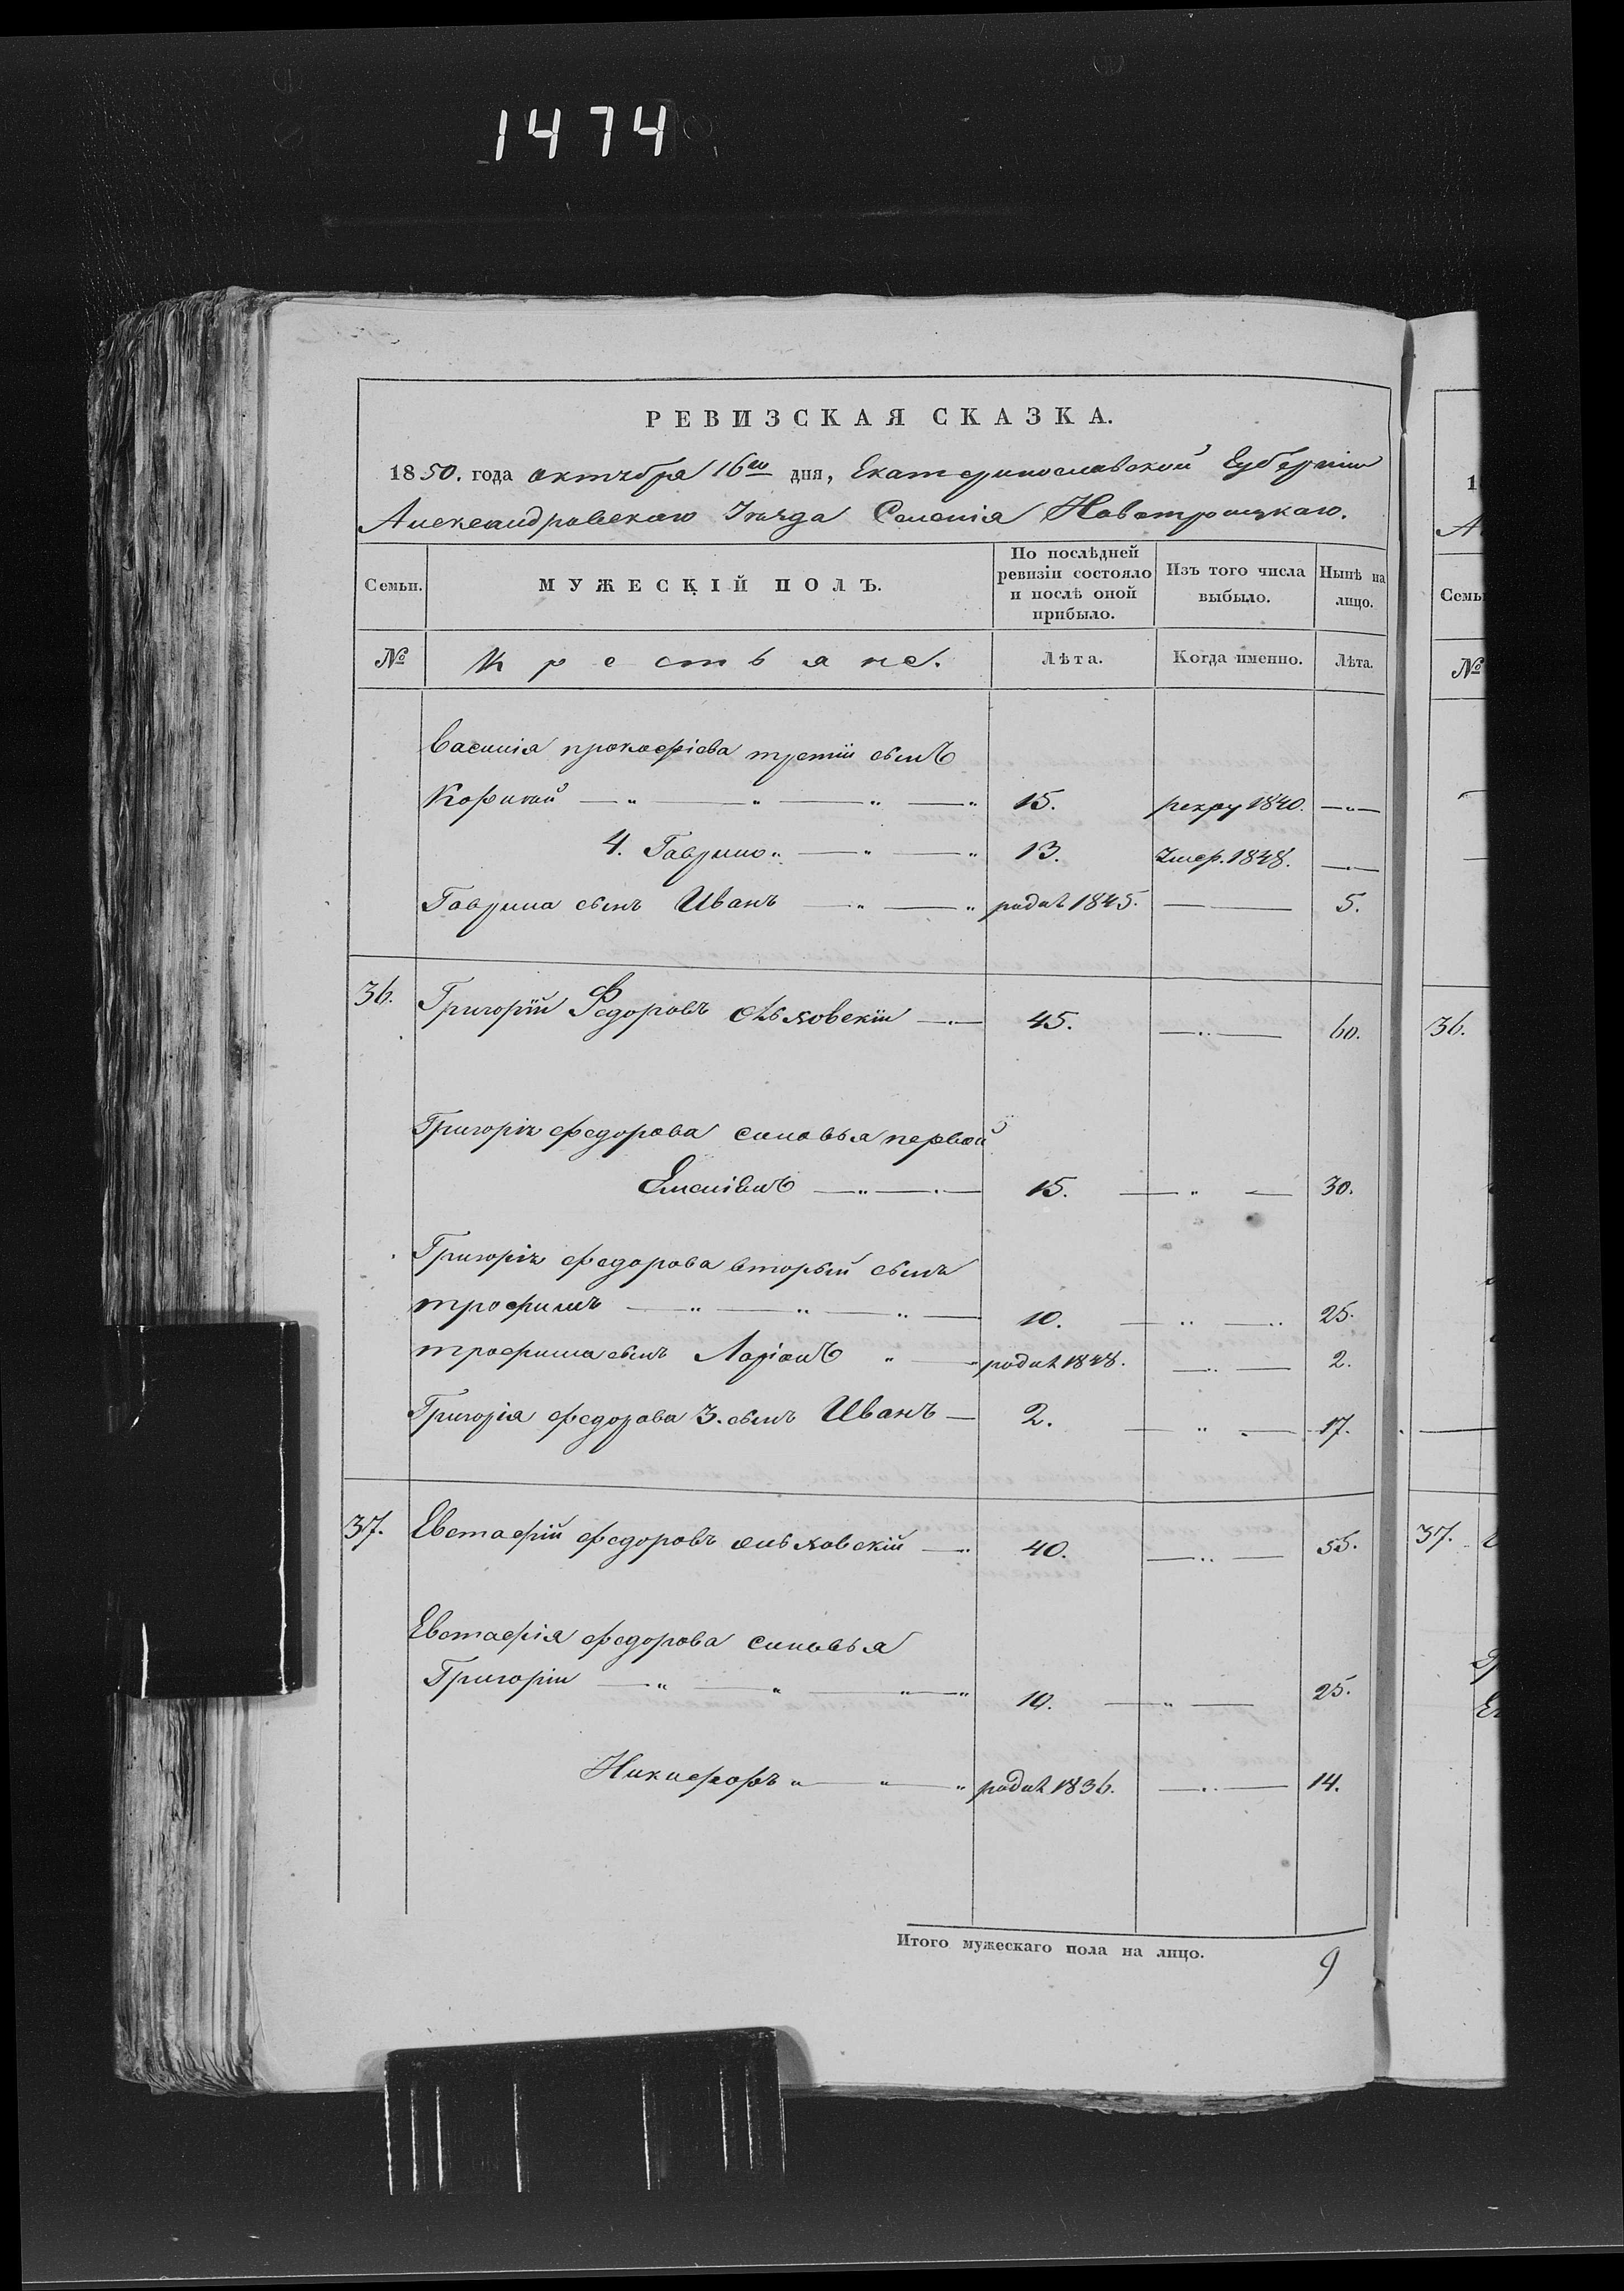 1474
РЕВИЗСКАЯ СКАЗКА.
1850. года октября 16го дня, Екатеринославской Губернии
Александровскаго Уезда Селенія Новотроицкаго.
Семьи. МУЖЕСКІЙ ПОЛЪ. По послѣдней ревизіи состояло и послѣ оной прибыло. Изъ того числа выбыло. Нынѣ на лицо.
№ Крестьяне. Лѣта. Когда именно. Лѣта.
Василія прокофіева третій сынъ
15. рекру 1840. —"—
4. Гаврило " — " — " 13. Умер. 1848. —"—
Гаврила сынъ Иванъ — " — " родил 1845. — 5.
36. Григорій Федоровъ —"— 45. —"— 60.
Григорія федорова синовья первой
15. — " — 30.
Григорія федорова вторый сынъ
трофимъ — " — " — " — 10. — " — " 25.
трофима сынъ Ларіонъ " — " родил 1848. —"— 2.
Григорія федорова 3. сынъ Иванъ — 2. — " — 17.
37. Евстафій федоровъ —" 40. —"— 55.
Евстафія федорова синовья
Григории — " — " — " — " 10. — " — 25.
Никифоръ " — " — " родил 1836. —"— 14.
Итого мужескаго пола на лицо. 9
1
А
Семь
№
36.
37.